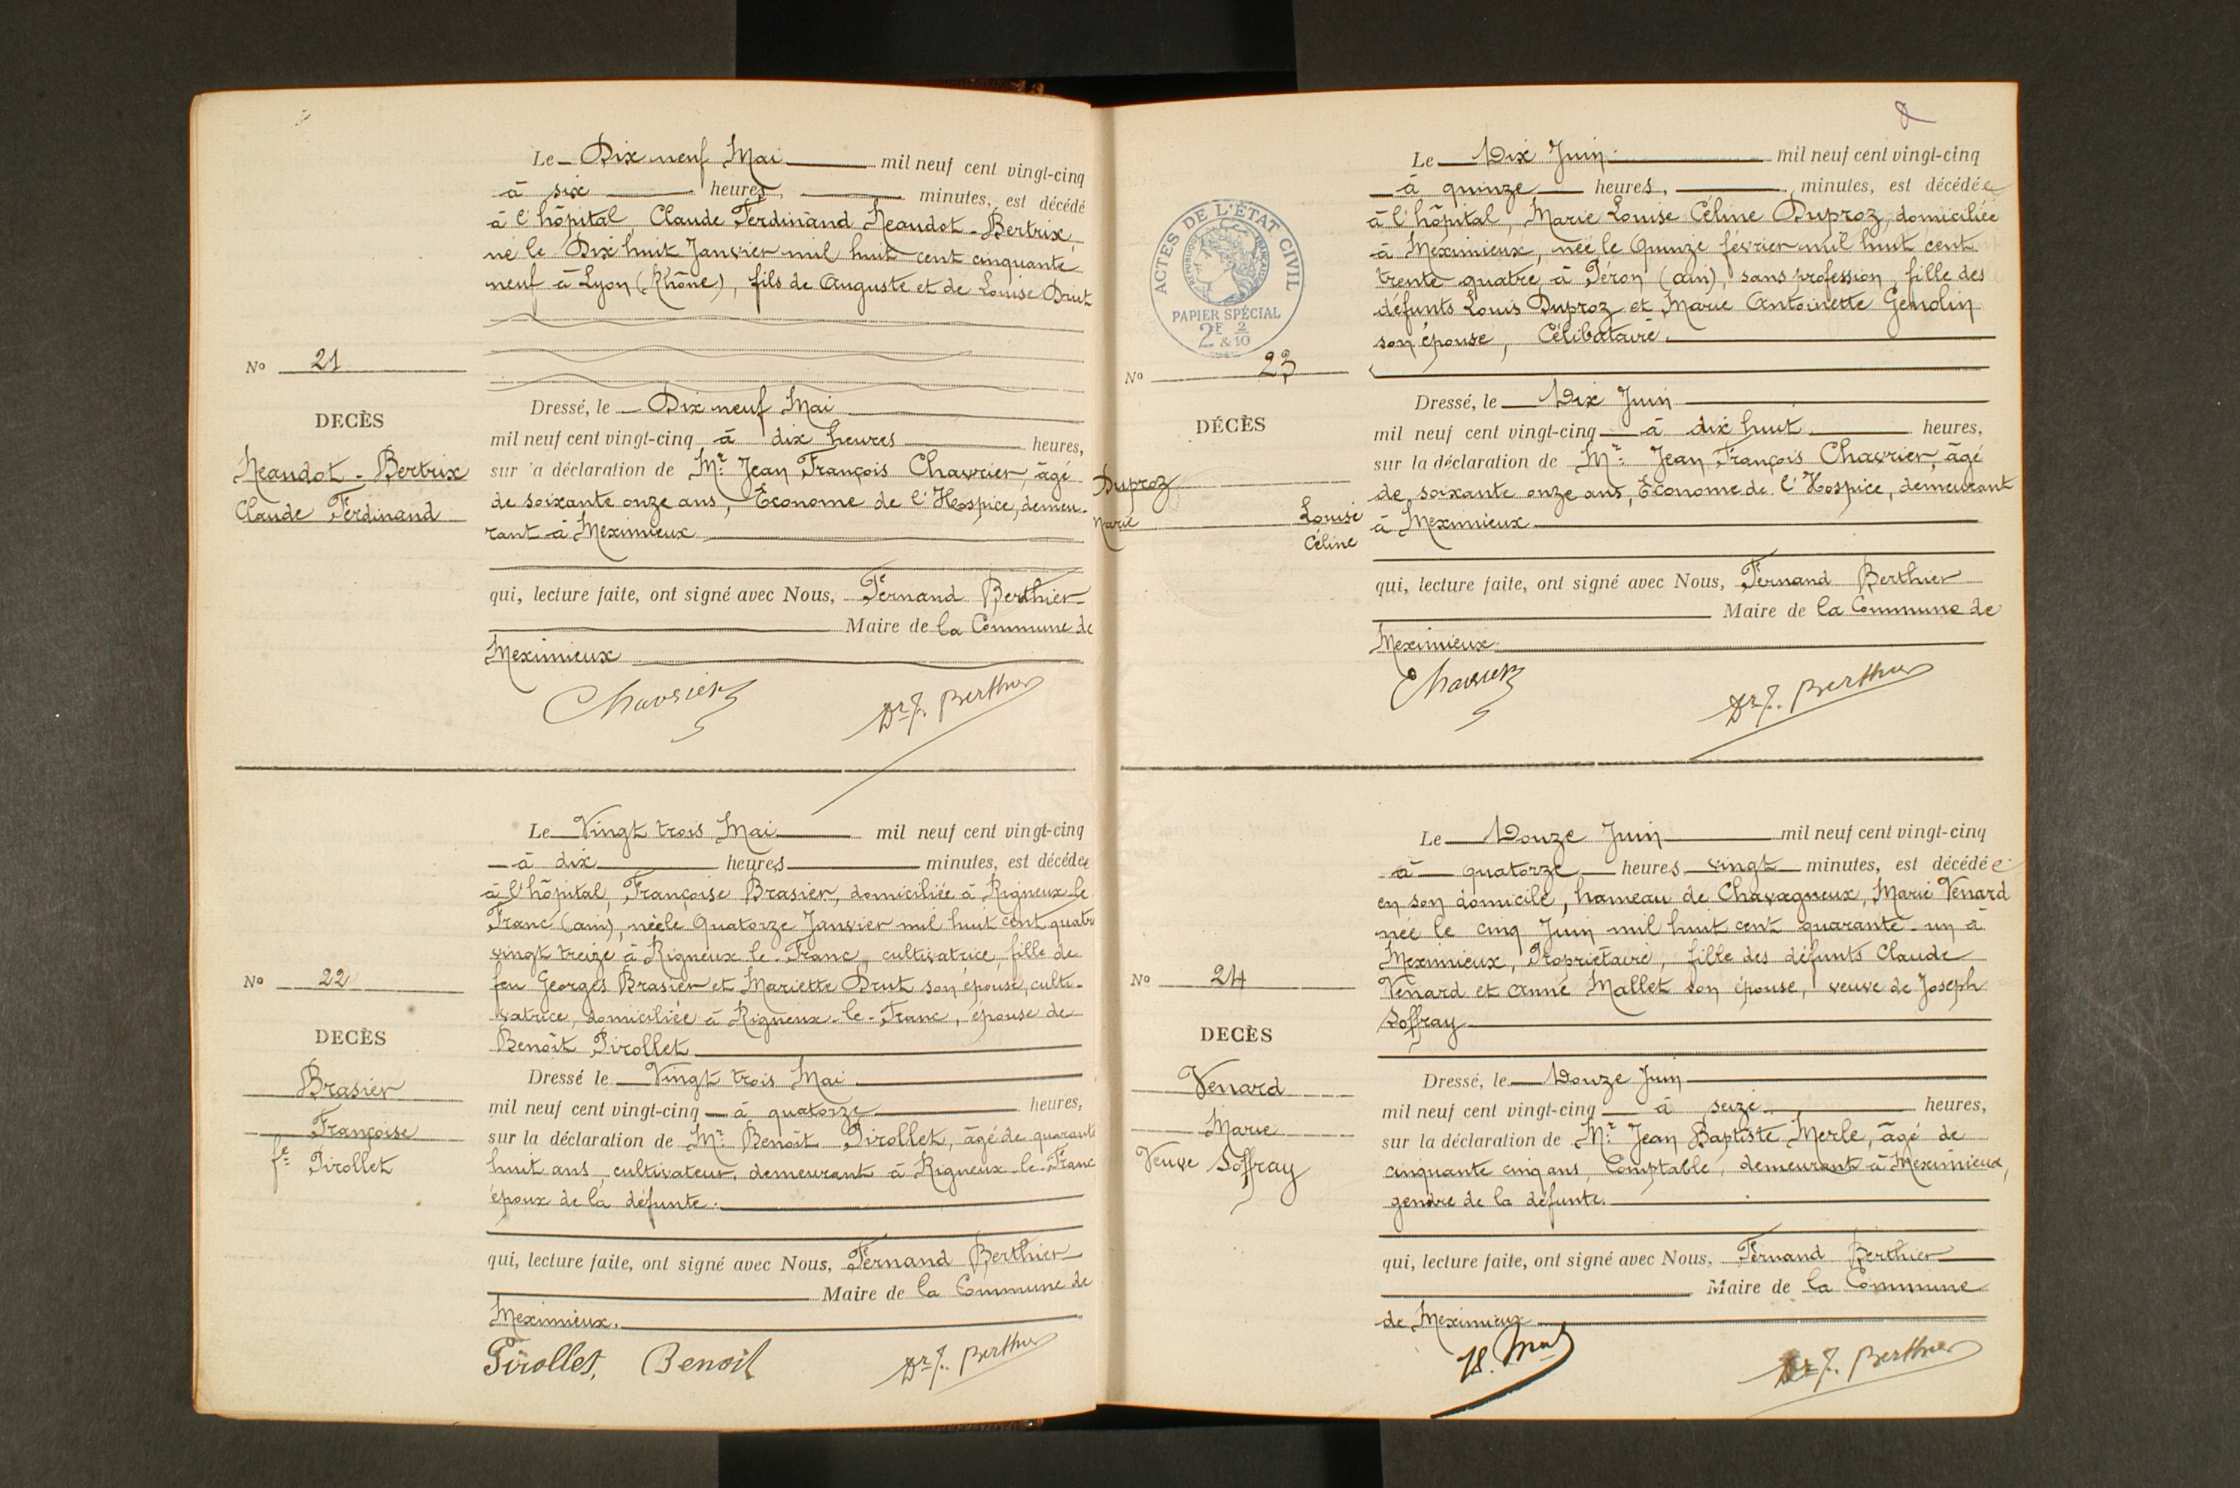 Le Dix neuf Mai mil neuf cent vingt-cinq
à six heures, minutes, est décédé
à l'hôpital, Claude Ferdinand Neaudot-Bertrix,
né le Dix huit Janvier mil huit cent cinquante
neuf à Lyon (Rhône), fils de Auguste et de Louise Drut
No 21
DECÈS
Neaudot-Bertrix
Claude Ferdinand
Dressé, le Dix neuf Mai
mil neuf cent vingt-cinq à dix heures heures,
sur la déclaration de Mr Jean François Chavrier, âgé
de soixante onze ans, Econome de l'Hospice, demeu-
rant à Meximieux
qui, lecture faite, ont signé avec Nous, Fernand Berthier
Maire de la Commune de
Meximieux
Chavrier Dr F. Berthier
Le Vingt trois Mai mil neuf cent vingt-cinq
à dix heures minutes, est décédée
à l'hôpital, Françoise Brasier, domiciliée à Rigneux-le
Franc (ain), née le Quatorze Janvier mil huit cent quatre
vingt treize à Rigneux-le-Franc, cultivatrice, fille de
feu Georges Brasier et Mariette Drut son épouse, culti-
vatrice, domiciliée à Rigneux-le-Franc, épouse de
Benoît Pirollet
No 22
DECÈS
Brasier
Françoise
fe Pirollet
Dressé le Vingt trois Mai
mil neuf cent vingt-cinq à quatorze heures,
sur la déclaration de Mr Benoît Pirollet, âgé de quarante
huit ans, cultivateur, demeurant à Rigneux-le-Franc
époux de la défunte.
qui, lecture faite, ont signé avec Nous, Fernand Berthier
Maire de la Commune de
Meximieux.
Pirollet, Benoit Dr F. Berthier
8
ACTES DE L'ÉTAT CIVIL
RÉPUBLIQUE FRANÇAISE
PAPIER SPÉCIAL
2F 2
& 10
Le Dix Juin mil neuf cent vingt-cinq
à quinze heures, minutes, est décédée
à l'hôpital, Marie Louise Céline Duproz, domiciliée
à Meximieux, née le Quinze février mil huit cent
trente quatre, à Péron (ain), sans profession, fille des
défunts Louis Duproz et Marie Antoinette Genolin
son épouse, Célibataire.
No 23
DÉCÈS
Duproz
Marie Louise
Céline
Dressé, le Dix Juin
mil neuf cent vingt-cinq à dix huit heures,
sur la déclaration de Mr Jean François Chavrier, âgé
de soixante onze ans, Econome de l'Hospice, demeurant
à Meximieux
qui, lecture faite, ont signé avec Nous, Fernand Berthier
Maire de la Commune de
Meximieux
Chavrier Dr F. Berthier
Le Douze Juin mil neuf cent vingt-cinq
à quatorze heures vingt minutes, est décédée
en son domicile, hameau de Chavagneux, Marie Venard
née le cinq Juin mil huit cent quarante-un à
Meximieux, Propriétaire, fille des défunts Claude
Venard et Anne Mallet son épouse, veuve de Joseph
Soffray
No 24
DECÈS
Venard
Marie
Veuve Soffray
Dressé, le Douze Juin
mil neuf cent vingt-cinq à seize heures,
sur la déclaration de Mr Jean Baptiste Merle, âgé de
cinquante cinq ans, Comptable, demeurant à Meximieux,
gendre de la défunte.
qui, lecture faite, ont signé avec Nous, Fernand Berthier
Maire de la Commune
de Meximieux
Dr F. Berthier